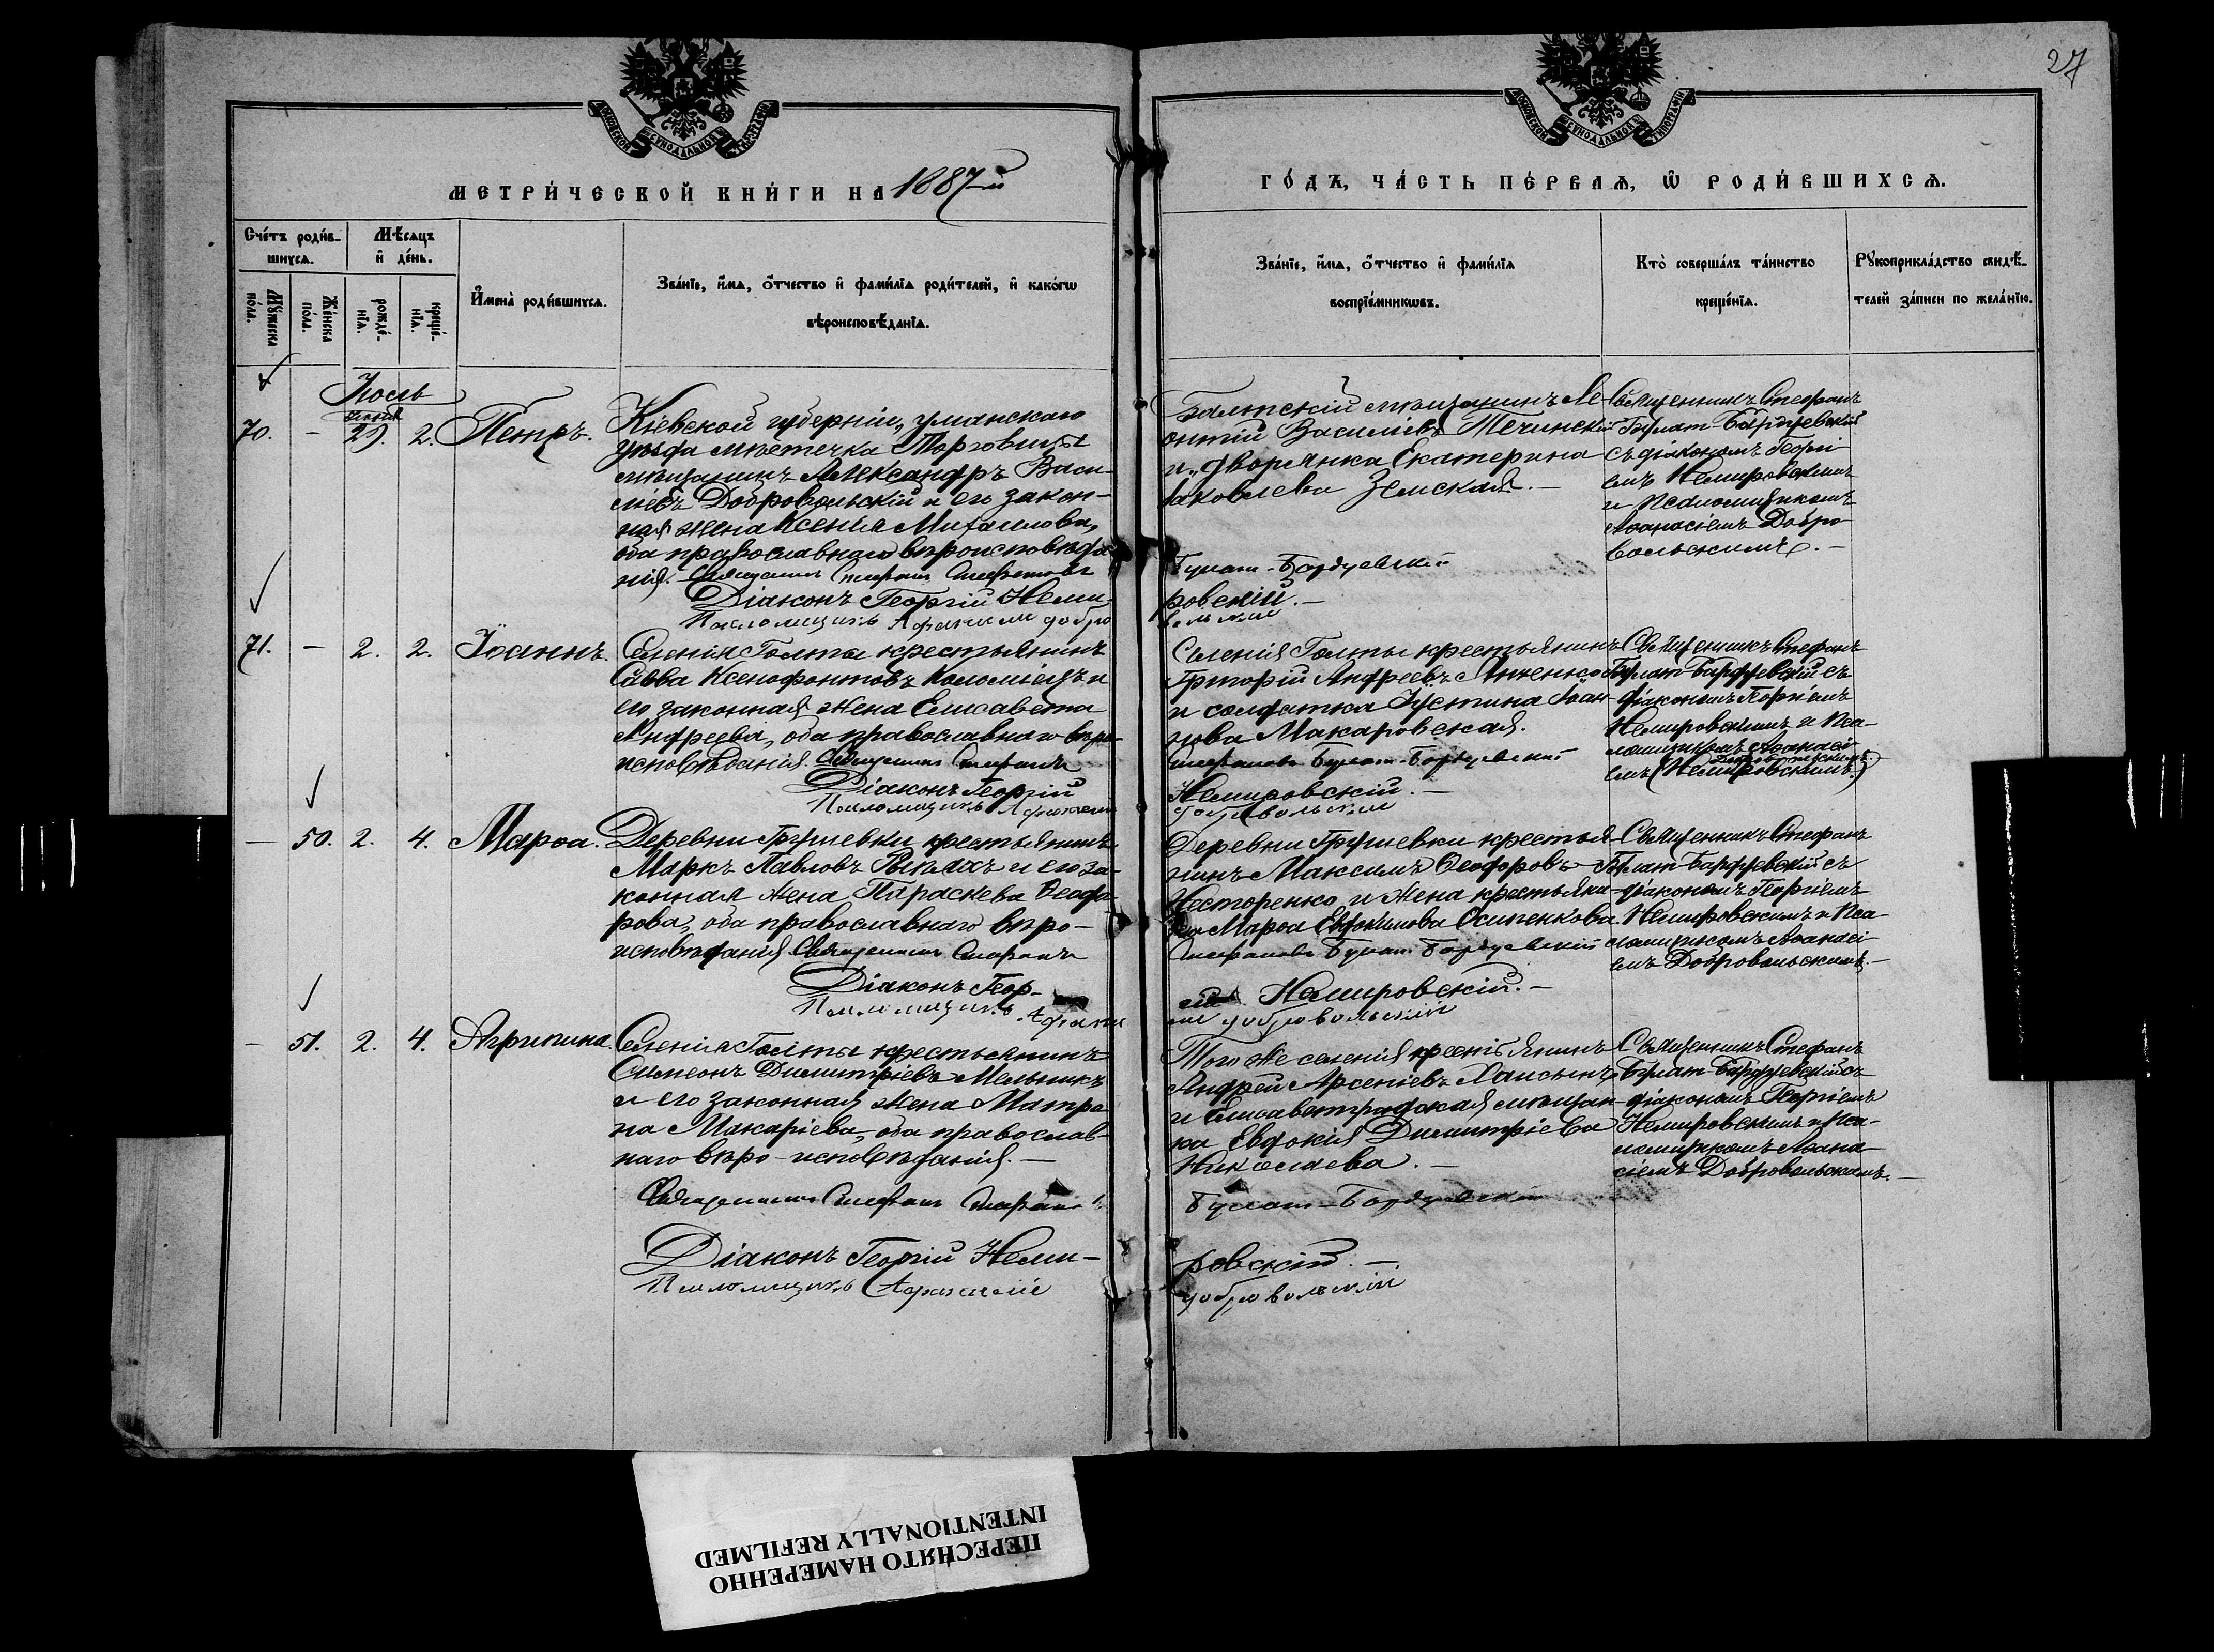 27
МОСКОВСКОЙ СѴНОДАЛЬНОЙ ТИПОГРАФІИ
МОСКОВСКОЙ СѴНОДАЛЬНОЙ ТИПОГРАФІИ
МЕТРИ́ЧЕСКОЙ КНИ́ГИ НА 1887-й
ГО́ДЪ, ЧА́СТЬ ПЕ́РВАѦ, Ѡ҆ РОДИ́ВШИХСѦ.
Сче́тъ роди́в-
шихсѧ.
Мѣ́сѧцъ
и҆ де́нь.
Мꙋ́жеска
по́ла.
Же́нска
по́ла.
рожде́-
нїѧ.
креще́-
нїѧ.
И҆мена̀ роди́вшихсѧ.
Зва́нїе, и҆́мѧ, ѻ҆́тчество и҆ фами́лїѧ роди́телей, и҆ како́гѡ
вѣроисповѣ́данїѧ.
Зва́нїе, и҆́мѧ, ѻ҆́тчество и҆ фами́лїѧ
воспрїе́мникѡвъ.
Кто̀ соверша́лъ та́инство
креще́нїѧ.
Рꙋкоприкла́дство свидѣ́-
телей за́писи по жела́нїю.
Іюль
70. - 29. 2. Петръ.
Кіевской губерніи, уманскаго
уѣзда мѣстечка Торговицы
мѣщанинъ Александръ Васи-
ліевъ Добровольскій и его закон-
ная жена Ксенія Михаилова,
оба православнаго вѣроисповѣда-
нія. Священникъ Стефанъ Стефановъ
Діаконъ Георгій Неми-
Псаломщикъ Афанасій добро
Балтскій мѣщанинъ Ле-
онтій Василіевъ Течинскій
и дворянка Екатерина
Іаковлева Земская.-
Булат-Бардуевскій
ровскій.-
вольскій
Священникъ Стефанъ
Булат-Бардуевскій
съ діакономъ Георгі-
емъ Немировскимъ
и псаломщикомъ
Аѳанасіемъ Добро-
вольскимъ.-
71. - 2. 2. Іоаннъ.
Селенія Голты крестьянинъ
Савва Ксенофонтовъ Коломіецъ и
его законная жена Елисавета
Андреева, оба православнаго вѣро-
исповѣданія. Священникъ Стефанъ
Діаконъ Георгій
Псаломщикъ Афанасій
Селенія Голты крестьянинъ
Григорій Андреевъ
и солдатка Іустина Іоан-
нова Макаровская.
Стефановъ Булат-Бардуевскій
Немировскій.-
добровольскій
Священникъ Стефанъ
Булат-Бардуевскій съ
діакономъ Георгіемъ
Немировскимъ и пса-
ломщикомъ Аѳанасі-
Добровольскимъ.
емъ (Немировскимъ.)
- 50. 2. 4. Марѳа.
Деревни Грушевки крестьянинъ
Маркъ Павловъ и его за-
конная жена Параскева Ѳеодо-
рова, оба православнаго вѣро-
исповѣданія. Священникъ Стефанъ
Діаконъ Геор-
Псаломщикъ Афана
Деревни Грушевки крестья-
нинъ Максимъ Ѳеодоровъ
Нестеренко и жена крестьяни-
на Марѳа Евдокимова Осипенкова.
Стефановъ Булат-Бардуевскій
гій Немировскій.-
сій добровольскій
Священникъ Стефанъ
Булат-Бардуевскій съ
діакономъ Георгіемъ
Немировскимъ и пса-
ломщикомъ Аѳанасі-
емъ Добровольскимъ.-
- 51. 2. 4. Агрипина.
Селенія Голты крестьянинъ
Симеонъ Димитріевъ Мельникъ
и его законная жена Матро-
на Макаріева, оба православ-
наго вѣро-исповѣданія.-
Священникъ Стефанъ Стефановъ
Діаконъ Георгій Неми-
Псаломщикъ Афанасій
Того же селенія крестьянинъ
Андрей Арсеніевъ
и Елисаветградская мѣщан-
ка Евдокія Димитріева
Николаева.-
Булат-Бардуевскій
ровскій.-
добровольскій
Священникъ Стефанъ
Булат-Бардуевскій съ
діакономъ Георгіемъ
Немировскимъ и пса-
ломщикомъ Аѳана-
сіемъ Добровольскимъ.-
ПЕРЕСНЯТО НАМЕРЕННО
INTENTIONALLY REFILMED